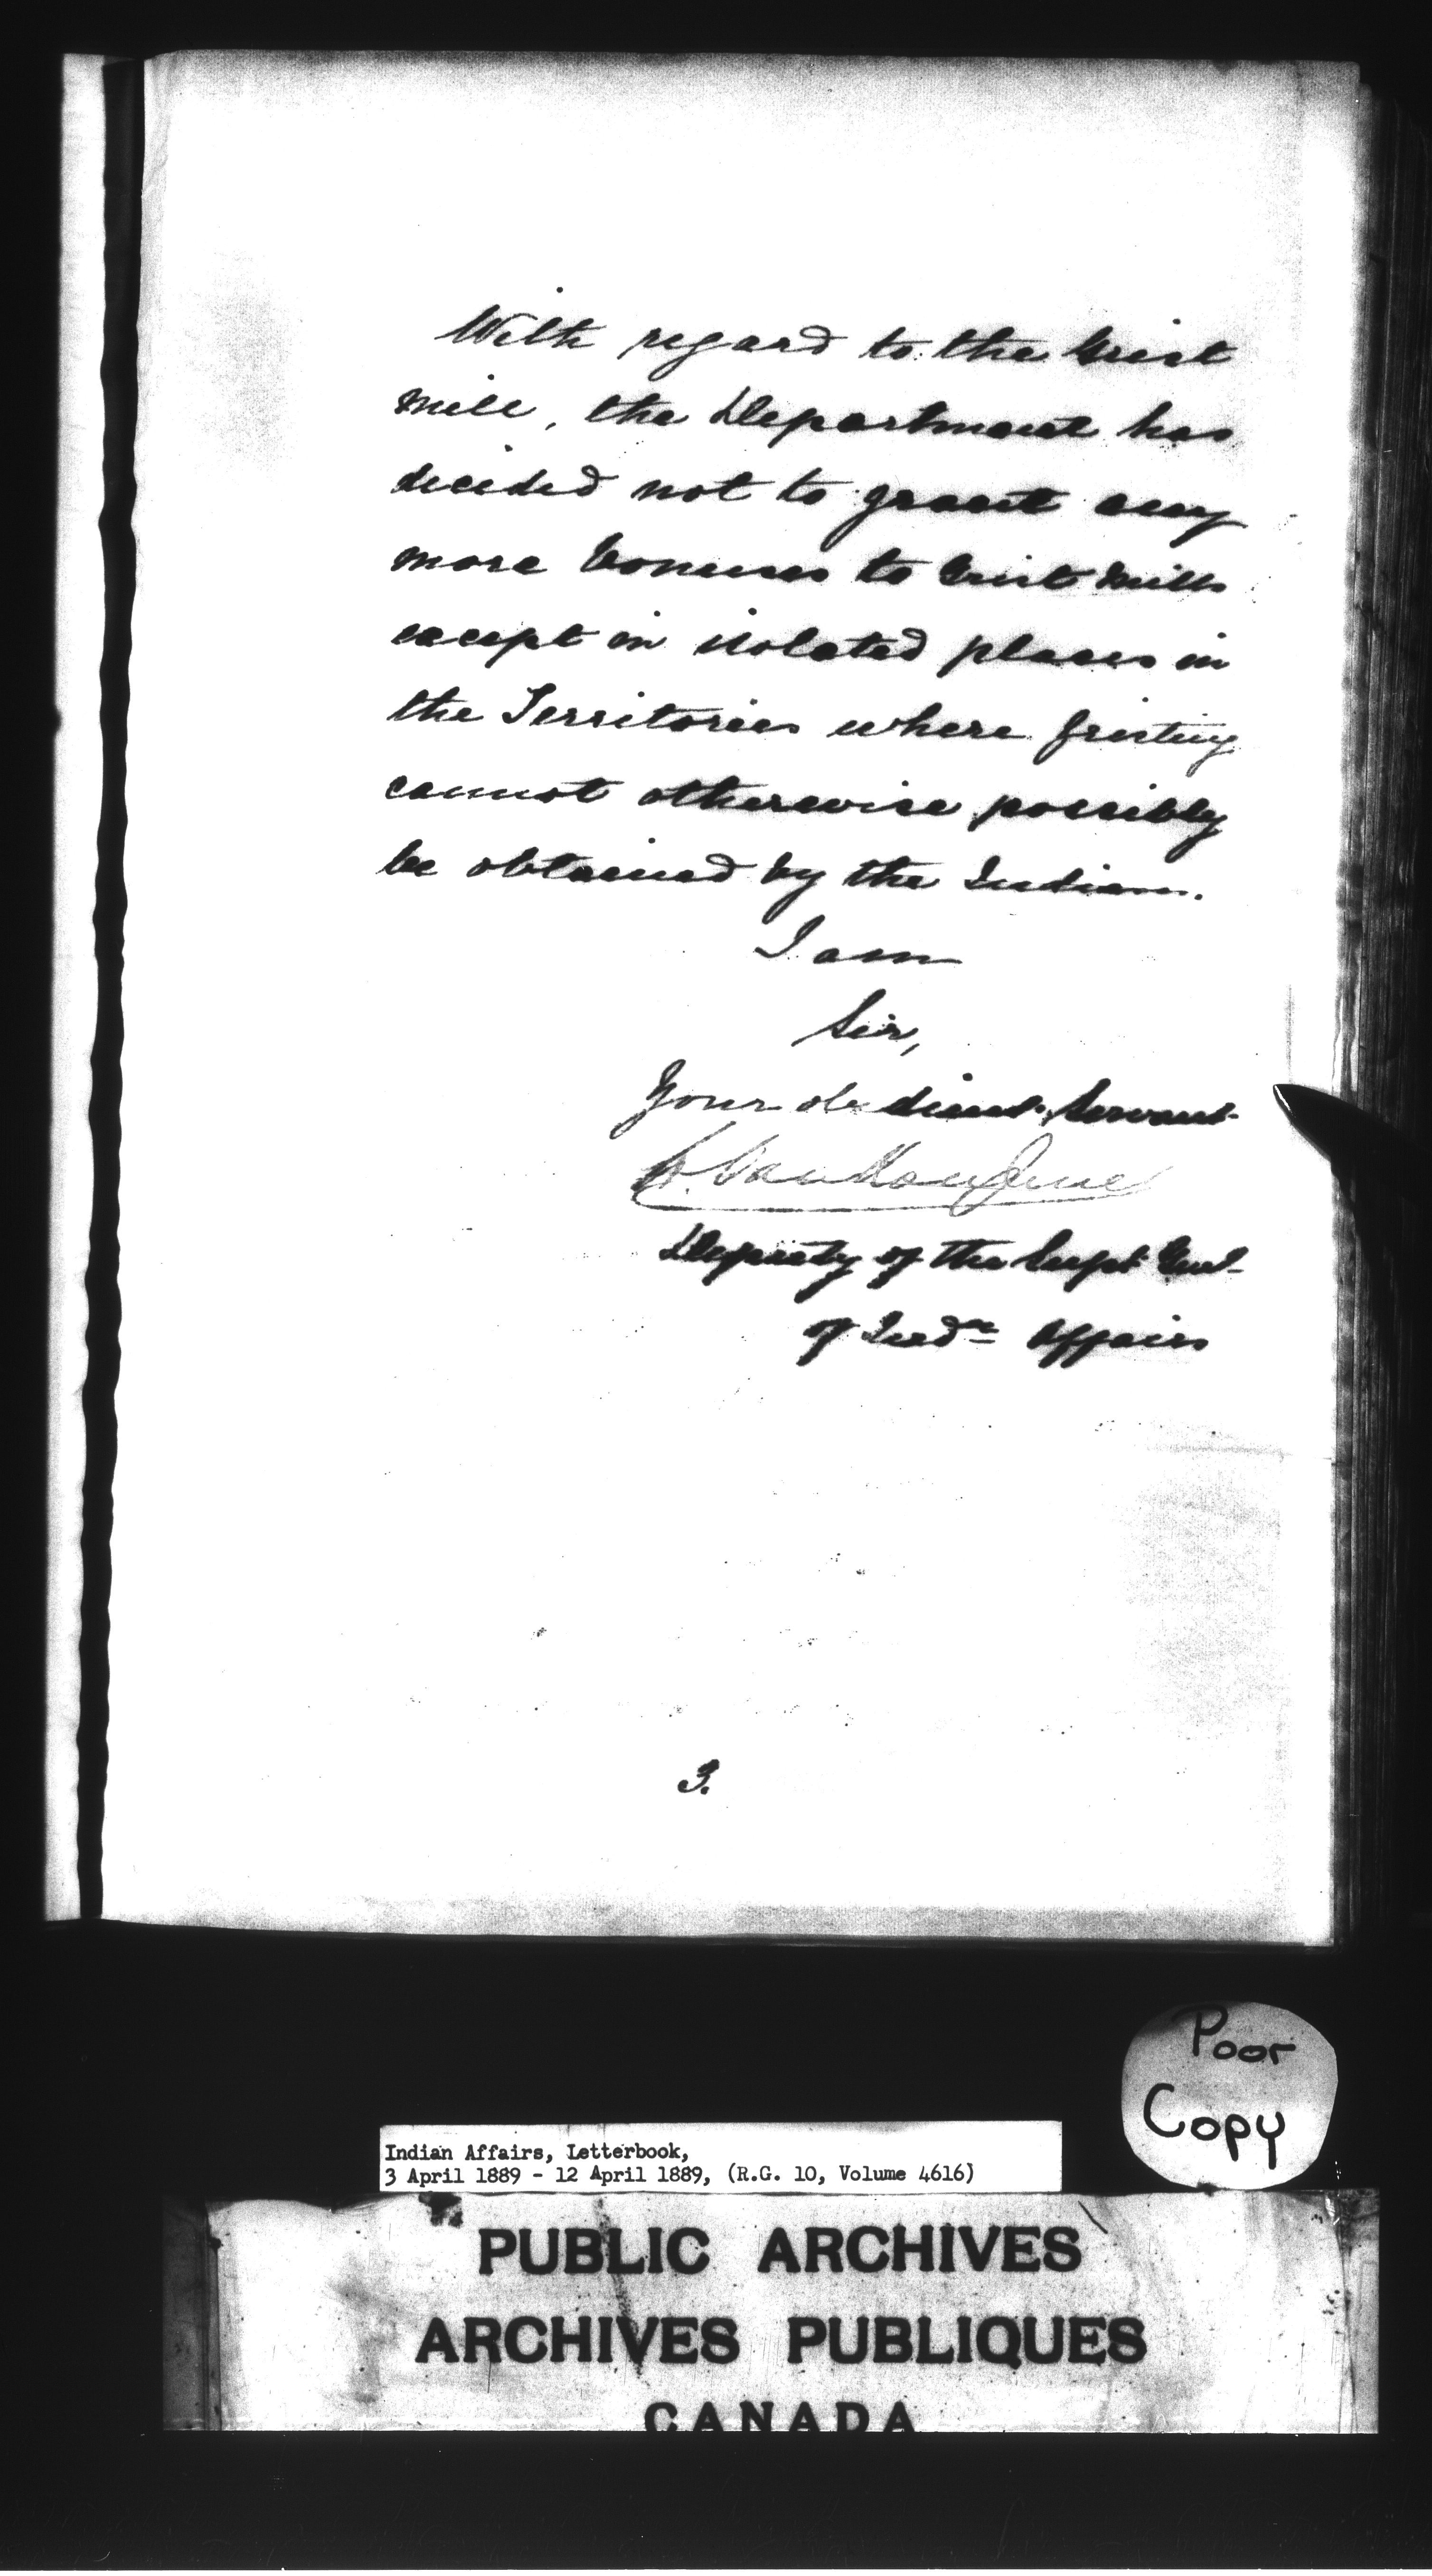 With regard to the Grist
Mill, the Department has
decided not to grant any
more bonuses to Grist Mills
except in isolated places in
the Territories where gristing
cannot otherwise possibly
be obtained by the Indians.
I am
Sir,
Your obedient Servant
L. VanKoughnet
Deputy of the Supt Genl
of Indn Affairs
3.
Poor
Copy
Indian Affairs, Letterbook,
3 April 1889 - 12 April 1889, (R.G. 10, Volume 4616)
PUBLIC ARCHIVES
ARCHIVES PUBLIQUES
CANADA